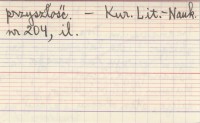 przyszłość. – Kur. Lit.-Nauk.
nr 204, il.